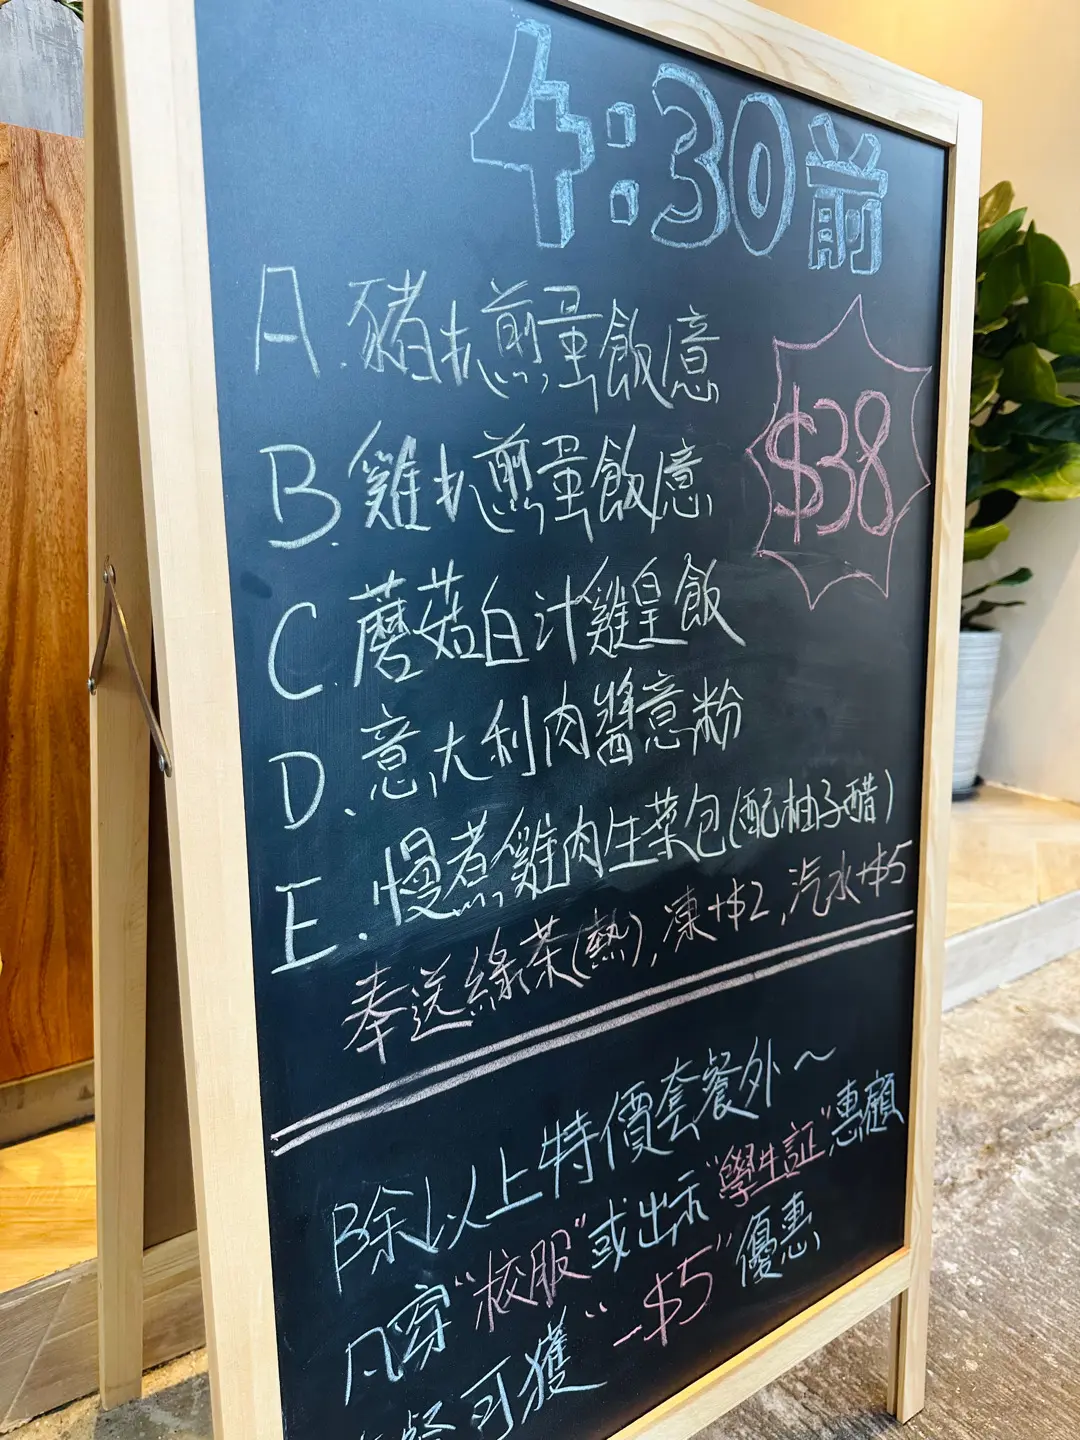 4:30前
A.豬扒煎蛋飯/意
B.雞扒煎蛋飯/意
$38
C.蘑菇白汁雞皇飯
D.意大利肉醬意粉
E.慢煮雞肉生菜包(配柚子醋)
奉送綠茶(熱),凍+$2,汽水+$5
除以上特價套餐外~
凡穿"校服"或出示"學生証"惠顧
餐可獲"-$5"優惠